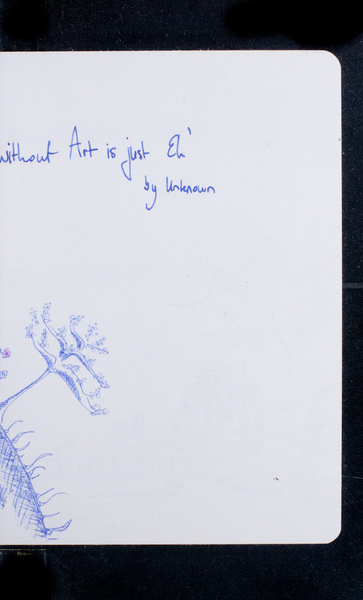 without Art is just Eh'
by Unknown